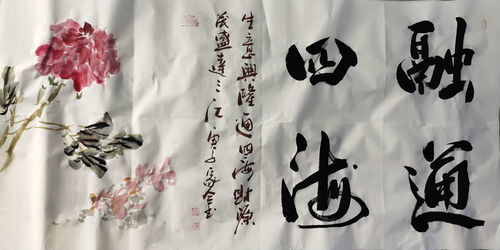 融通
四海
生意興隆通四海財源
茂盛達三江庚子